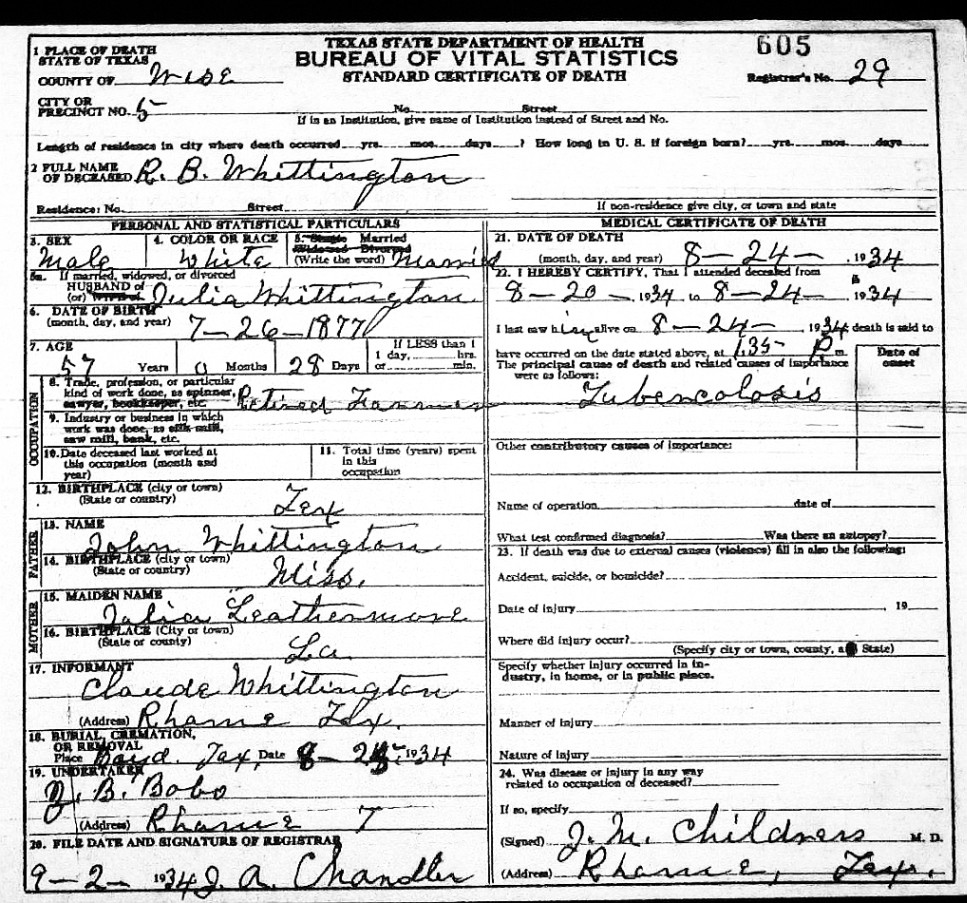 TEXAS STATE DEPARTMENT OF HEALTH
BUREAU OF VITAL STATISTICS
STANDARD CERTIFICATE OF DEATH
605
Registrar's No. 29
1 PLACE OF DEATH
STATE OF TEXAS
COUNTY OF Wise
CITY OR
PRECINCT NO. 5 No. Street
If in an Institution, give name of Institution instead of Street and No.
Length of residence in city where death occurred yrs. mos. days ? How long in U. S. if foreign born? yrs. mos. days
2 FULL NAME
OF DECEASED R. B. Whittington
Residence: No. Street
If non-residence give city, or town and state
PERSONAL AND STATISTICAL PARTICULARS
3. SEX
Male
4. COLOR OR RACE
White
5. Single Married
Widowed Divorced
(Write the word) Married
5a. If married, widowed, or divorced
HUSBAND of
(or) WIFE of Julia Whittington
6. DATE OF BIRTH
(month, day, and year) 7-26-1877
7. AGE
57 Years 0 Months 28 Days
If LESS than 1
1 day, hrs.
or min.
OCCUPATION
8. Trade, profession, or particular
kind of work done, as spinner,
sawyer, bookkeeper, etc. Retired Farmer
9. Industry or business in which
work was done, as silk mill,
saw mill, bank, etc.
10. Date deceased last worked at
this occupation (month and
year)
11. Total time (years) spent
in this
occupation
12. BIRTHPLACE (city or town)
(State or country) Tex
FATHER
13. NAME
John Whittington
14. BIRTHPLACE (city or town)
(State or country) Miss.
MOTHER
15. MAIDEN NAME
Julia Leathermore
16. BIRTHPLACE (City or town)
(State or county) La
17. INFORMANT
Claude Whittington
(Address) Rhame Tex.
18. BURIAL, CREMATION,
OR REMOVAL
Place Boyd. Tex, Date 8- 25. 1934
19. UNDERTAKER
B. Bobo
(Address) Rhame T
20. FILE DATE AND SIGNATURE OF REGISTRAR
9-2- 1934 J. A. Chandler
MEDICAL CERTIFICATE OF DEATH
21. DATE OF DEATH
(month, day, and year) 8-24- , 1934
22. I HEREBY CERTIFY, That I attended deceased from
8-20 , 1934 to 8-24- , 1934
I last saw him alive on 8-24- , 1934 death is said to
have occurred on the date stated above, at 135 P. m.
The principal cause of death and related causes of importance
were as follows:
Date of
onset
Tubercolosis
Other contributory causes of importance:
Name of operation date of
What test confirmed diagnosis? Was there an autopsy?
23. If death was due to external causes (violence) fill in also the following:
Accident, suicide, or homicide?
Date of injury , 19
Where did injury occur?
(Specify city or town, county, State)
Specify whether injury occurred in in-
dustry, in home, or in public place.
Manner of injury
Nature of injury
24. Was disease or injury in any way
related to occupation of deceased?
If so, specify
(Signed) J. M. Childress M. D.
(Address) Rhame, Tex.